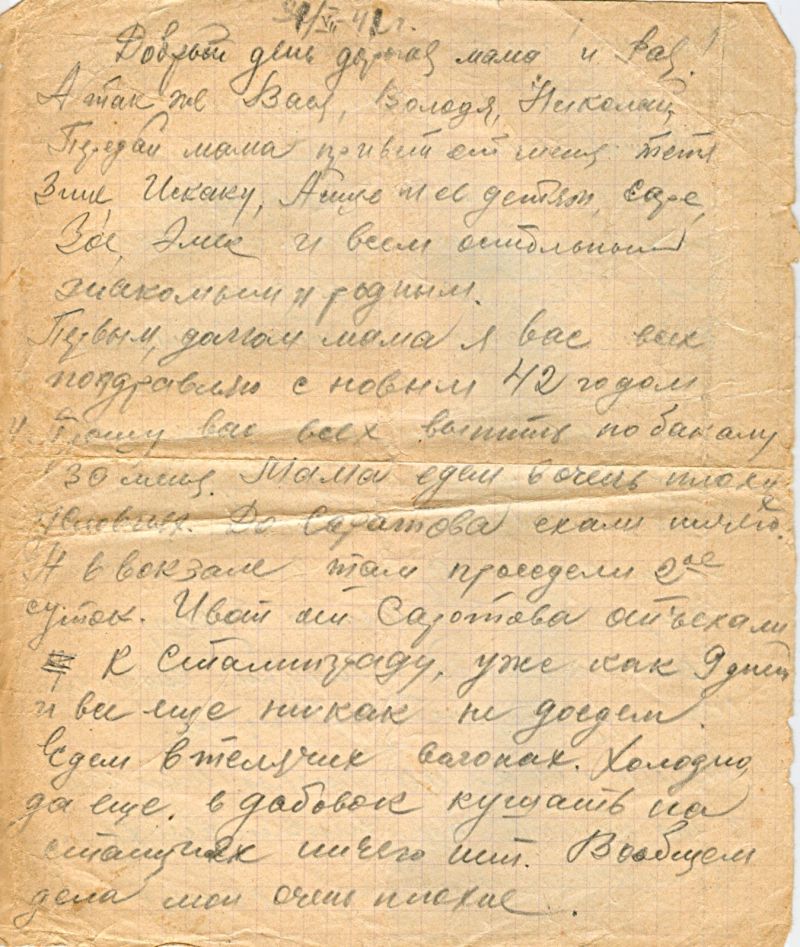 Добрый день дорогая мама и Рая!
А так же Вася, Володя, Николай,
Передай мама привет от меня тете
Зине Искаку, и ее детям, Саре,
Зое, Эмек и всем остальным
знакомым и родным.
Первым, долгом мама я вас всех
поздравляю с новым 42 годом
и Прошу вас всех выпить по бакалу
за меня. Мама едем в очень плохих
условиях. До Саратова ехали ничего.
И в вокзале там проседели 2ое
суток. И вот от Саротова отъехали
к Сталинграду, уже как 9 дней
и все еще никак не доедем.
Едем в телячих вагонах. Холодно,
да еще в добовок кушать на
станциях ничего нет. Вообщем
дела мои очень плохие.